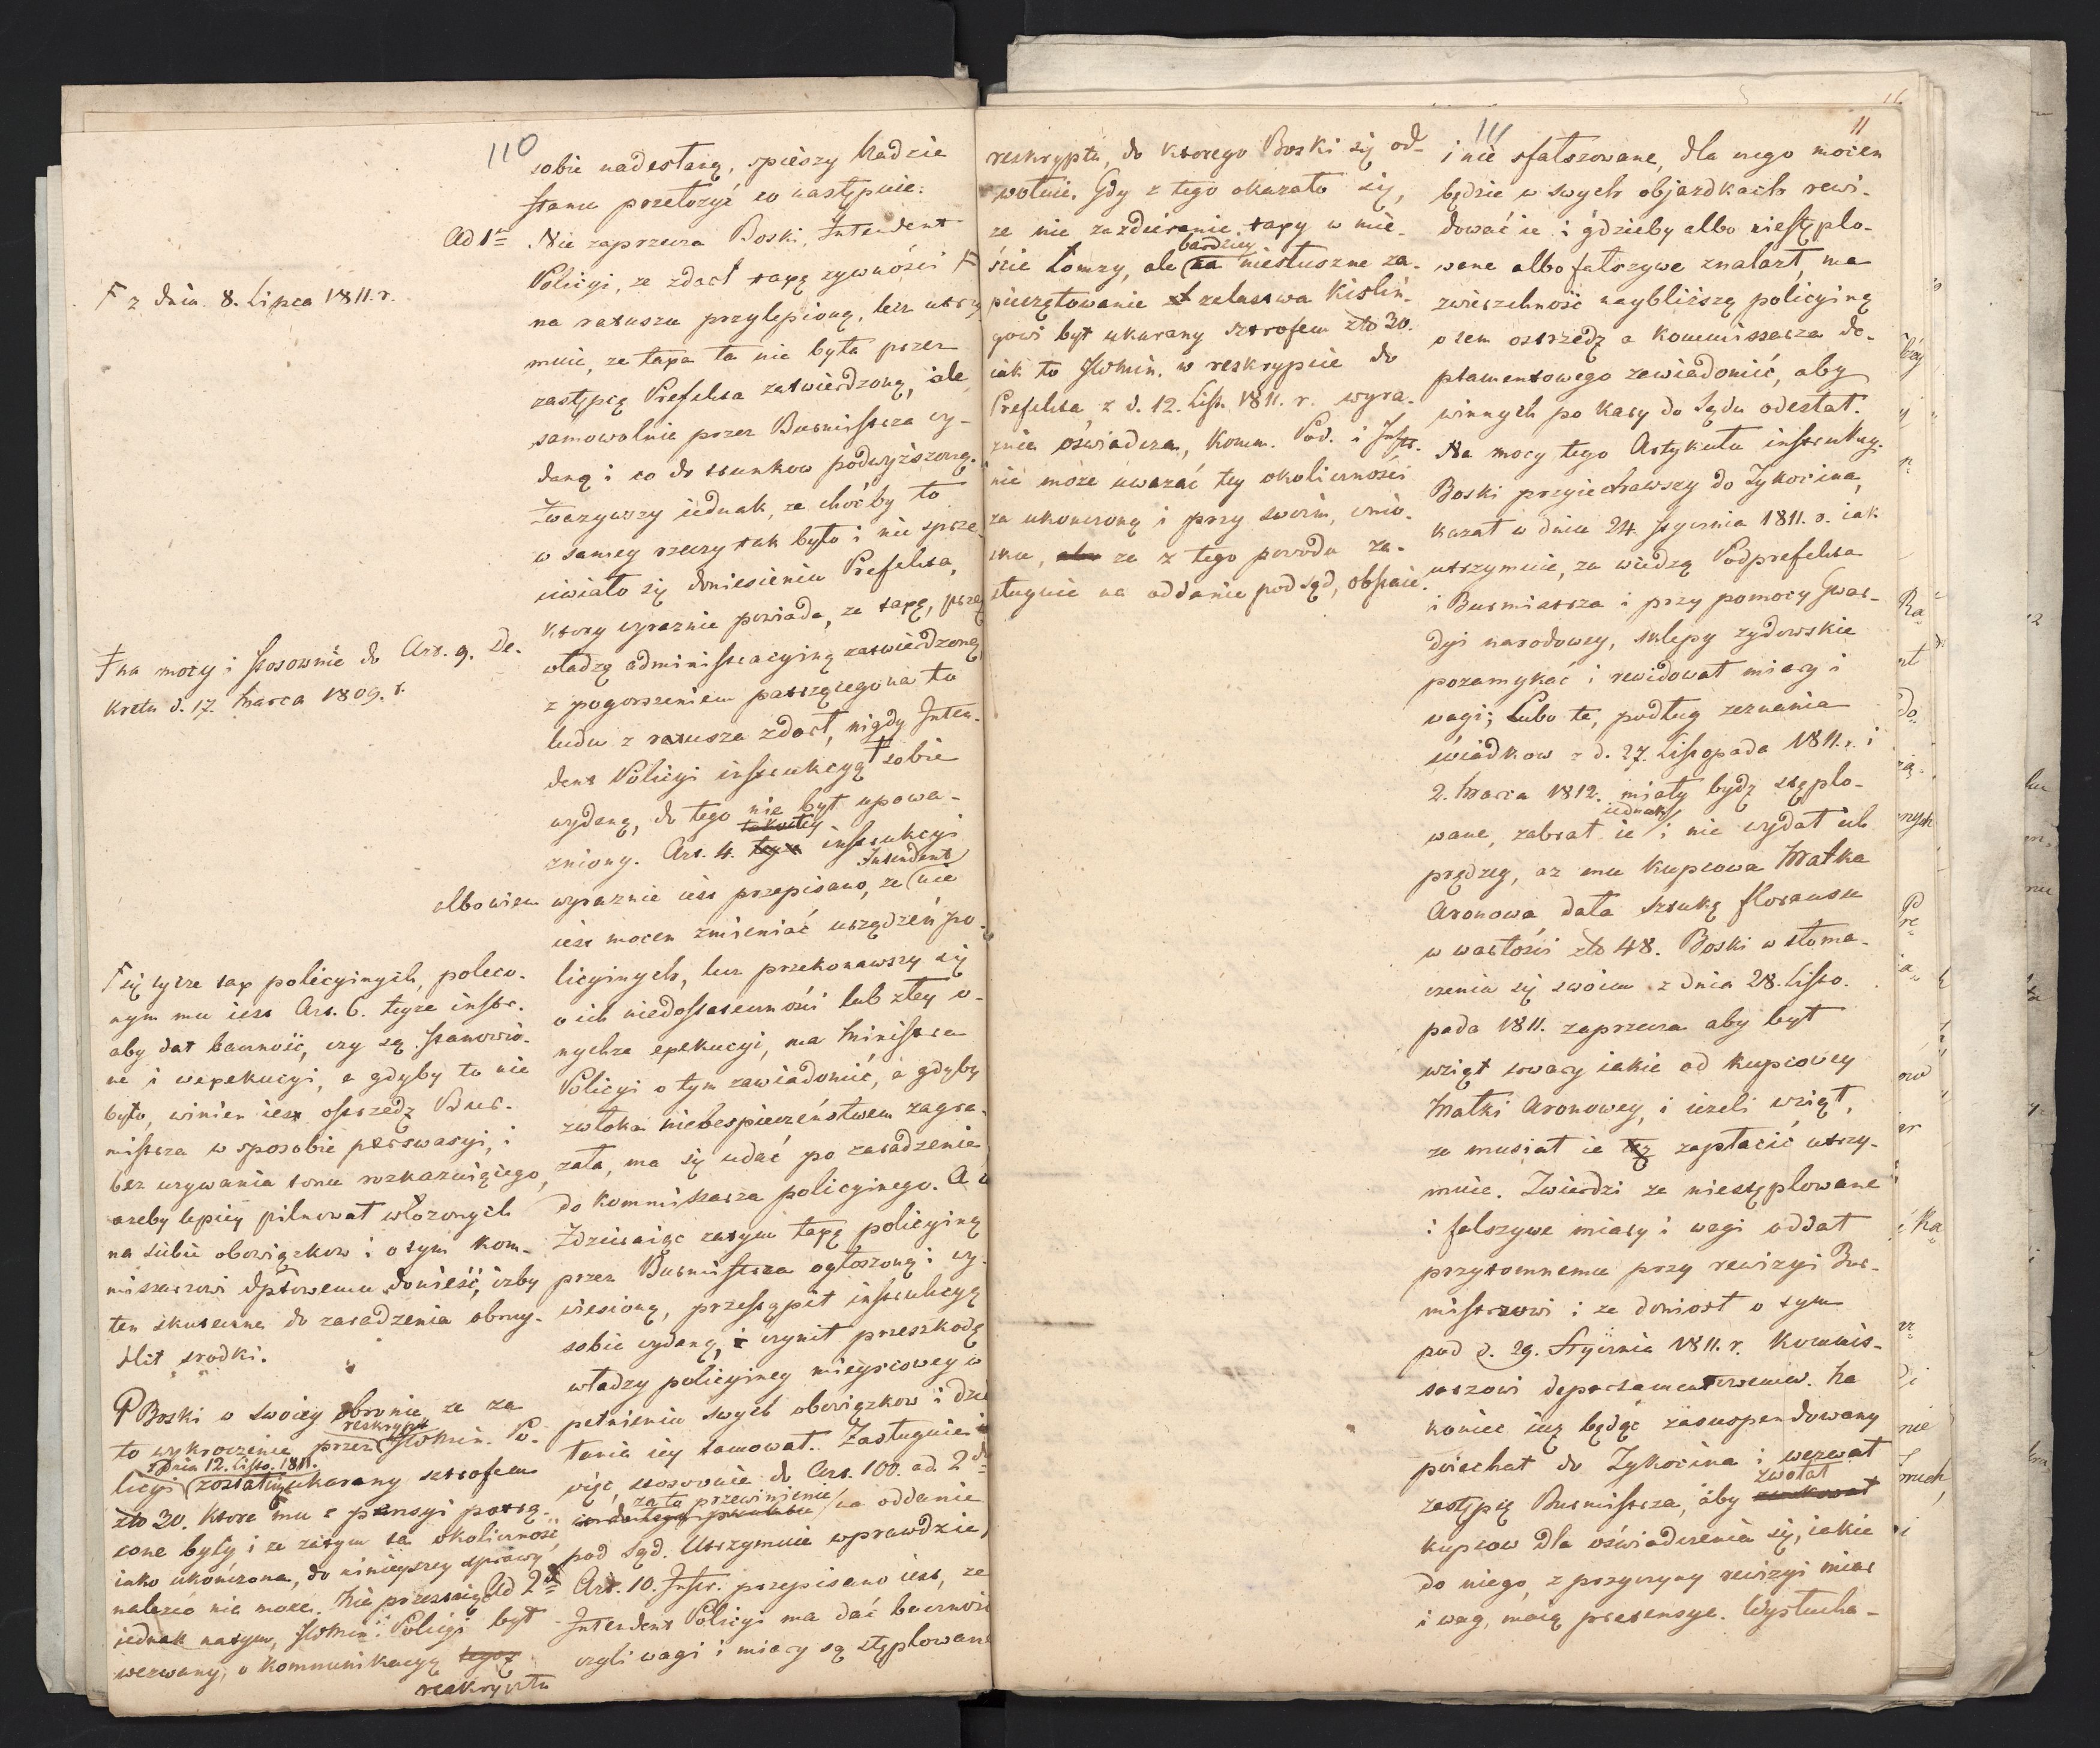 110
sobie nadesłaną, spieszy Radzie
stanu przełożyć co następuie:
Ad 1m Nie zaprzecza Boski, Intendent
Policyi, ze zdarł taxę zywności F
na ratuszu przylepioną, lecz utrzy
muie, ze taxa ta nie była przez
zastępcę Prefekta zatwierdzoną, ale
samowolnie przez Burmistrza wy-
daną i co do trunkow podwyższoną.
Zwazywszy iednak, ze choćby to
w samey rzeczy tak było i nie sprze
ciwiało się doniesieniu Prefekta,
ktory wyraznie powiada, ze taxę, przez
władzę administracyiną zatwierdzoną
z pogorszeniem patrzącego na to
ludu z ratusza zdarł, nigdy Inten-
dent Policyi instrukcyą ‡ sobie
wydaną, do tego nie był upowa-
zniony. Art. 4. teyze instrukcyi
albowiem wyraznie iest przepisano, ze Intendent nie
iest mocen zmieniać urządzeń po-
licyinych, lecz przekonawszy się
o ich niedostateczności lub złey o-
nychze exekucyi, ma Ministra
Policyi o tym zawiadomić, a gdyby
zwłoka niebespieczeństwem zagra-
zała, ma się udać po zaradzenie
do kommissarza policyinego. A
Zdzieraiąc zatym taxę policyiną
przez Burmistrza ogłoszoną i wy-
wiesioną, przestąpił instrukcyą
sobie wydaną, i czynił przeszkodę
władzy policyiney mieyscowey w
pełnieniu swych obowiązkow i dzia
łania iey tamował. Zasługuie
więc, stosownie do Art. 100. ad. 2
za to przewinienie na oddanie
pod sąd. Utrzymuie wprawdzie,
Ad 2m Art. 10. Instr. przepisano iest, ze
Intendent Policyi ma dać baczność
czyli wagi i miary są stęplowane
F z dnia 8. Lipca 1811. r.
‡ na mocy i stosownie do Art. 9. De-
kretu d. 17. Marca 1809. r.
F się tycze tax policyinych, poleco-
nym mu iest Art. 6. teyze instr.
aby dał baczność, czy są stanowio-
ne i w exekucyi, a gdyby to nie
było, winien iest ostrzedz Bur-
mistrza w sposobie perswazyi, i
bez uzywania tonu rozkazuiącego,
azeby lepiey pilnował włozonych
na siebie obowiązkow i o tym kom-
missarzowi dptowemu donieść, izby
ten skuteczne do zaradzenia obmy-
ślił srodki.
Boski w swoiey obronie ze za
to wykroczenie przez reskrypt JWMin. Po-
licyi z dnia 12. Listo. 1811. został iuz ukarany sztrofem
złp 30. ktore mu z pensyi potrą-
cone były i ze zatym ta okoliczność,
iako ukończona, do ninieyszey sprawy
nalezeć nie moze. Nie przestaiąc
iednak na tym, JWMin. Policyi był
wezwany, o kommunikacyą tegoz
reskryptu
reskryptu, do ktorego Boski się od-
wołuie. Gdy z tego okazało się,
ze nie za zdzieranie taxy w mie-
ście Łomzy, ale bardziey za niesłuszne za-
pieczętowanie zelastwa Kislin-
gowi był ukarany sztrofem złp 30.
iak to JWMin. w reskrypcie do
Prefekta z d. 12. List. 1811. r. wyra-
znie oświadcza, Komm. Pod. i Instr.
nie moze uwazać tey okoliczności
za ukonczoną i przy swoim, wnio-
sku, ze z tego powodu za-
sługuie na oddanie pod sąd, obstaie.
111
11
i nie sfałszowane, dla czego mocen
będzie w swych objazdkach rewi-
dować ie i gdzieby albo niestęplo-
wane albo fałszywe znalazł, ma
zwierzchność naybliższą policyiną
o tem ostrzedz a kommissarza de-
ptamentowego zawiadomić, aby
winnych po karę do Sądu odesłał.
Na mocy tego Artykułu instrukcyi
Boski przyiechawszy do Tykocina,
kazał w dniu 24. Stycznia 1811. r. iak
utrzymuie, za wiedzą Podprefekta
i Burmistrza i przy pomocy Gwar-
dyi narodowey, sklepy zydowskie
pozamykać i rewidował miary i
wagi; Lubo te, podług zeznania
świadkow z d. 27. Listopada 1811. r. i
2. Marca 1812. miały bydz stęplo-
wane, zabrał ie iednak i nie wydał ich
prędzey, az mu kupcowa Małka
Aronowa dała sztukę floransu
w wartości złp 48. Boski w tłoma-
czeniu się swoiem z dnia 28. Listo-
pada 1811. zaprzecza aby był
wziął towary iakie od kupcowey
Małki Aronowey, i iezeli wziął,
ze musiał ie zapłacić utrzy-
muie. Zwierdzi ze niestęplowane
i fałszywe miary i wagi oddał
przytomnemu przy rewizyi Bur-
mistrzowi i ze doniosł o tym
pod d. 29. Stycznia 1811. r. Kommis-
sarzowi departamentowemu. Na
koniec iuz będąc zasuspendowany
poiechał do Tykocina i wezwał
zastępcę Burmistrza, aby zwołał
kupcow dla oświadczenia się, iakie
do niego, z przyczyny rewizyi miar
i wag, maią pretensye. Wysłucha-